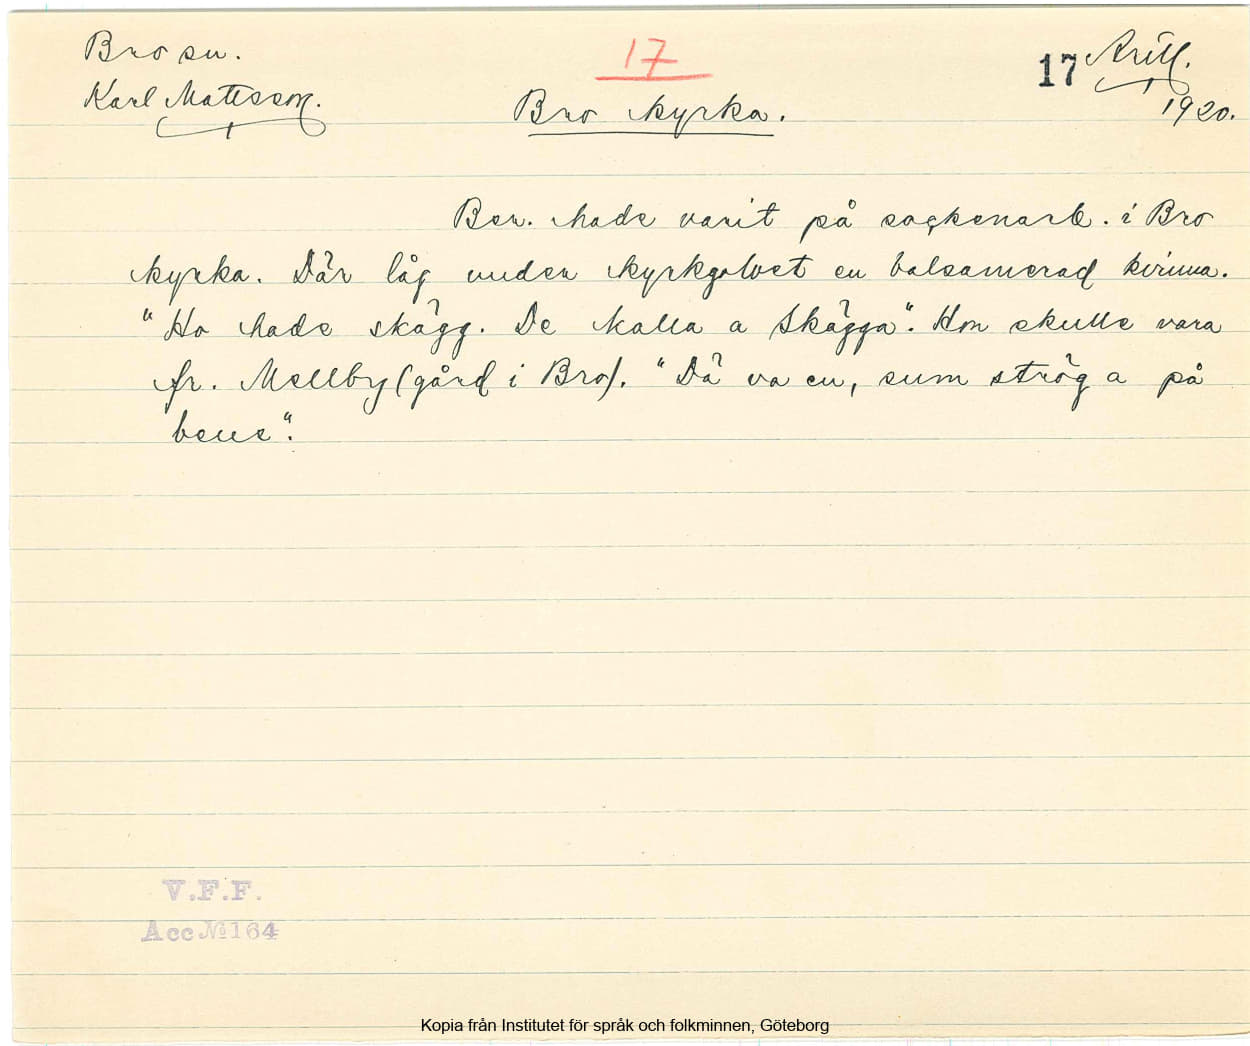 Bro sn.
17
17 Arill.
Karl Mattsson.
1920.
Bro kyrka.
Ber. hade varit på sockenarb. i Bro
kyrka. Där låg under kyrkgolvet en balsamerad kvinna.
"Ho hade skägg. De kalla a Skägga". Hon skulle vara
fr. Mellby (gård i Bro). "Dä va en, sum strög a på
bene".
V.F.F.
Acc № 164
Kopia från Institutet för språk och folkminnen, Göteborg